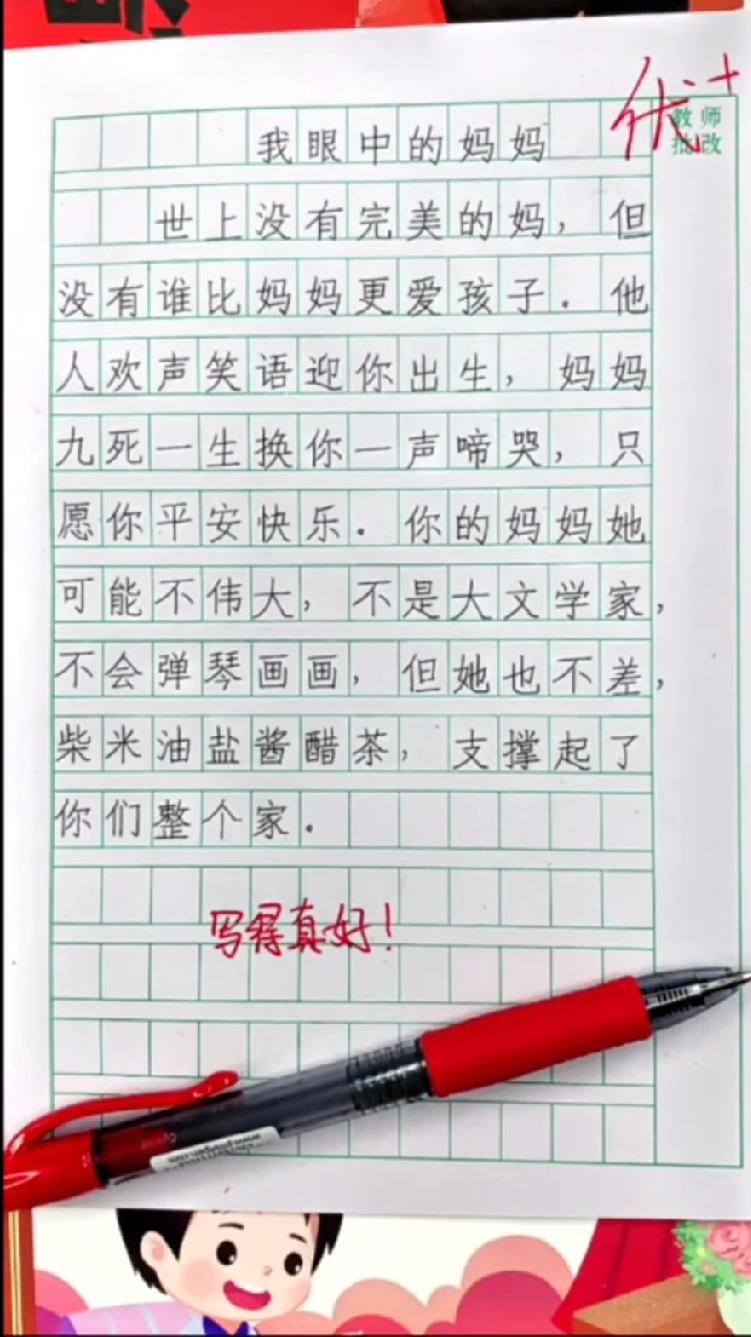 优+
教师
批改
我眼中的妈妈
世上没有完美的妈，但
没有谁比妈妈更爱孩子．他
人欢声笑语迎你出生，妈妈
九死一生换你一声啼哭，只
愿你平安快乐．你的妈妈她
可能不伟大，不是大文学家，
不会弹琴画画，但她也不差，
柴米油盐酱醋茶，支撑起了
你们整个家．
写得真好！